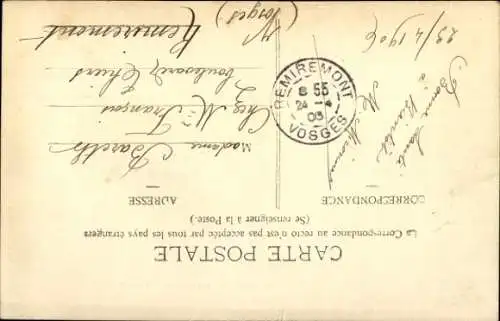 CARTE POSTALE
La Correspondance au recto n'est pas acceptée par tous les pays étrangers
(Se renseigner à la Poste.)
CORRESPONDANCE
ADRESSE
23/4 1906
Bonne Santé
Madame Bareth
Chez Mr François
boulevard Thiers
Remiremont
(Vosges)
REMIREMONT
8 55
24 - 4
06
VOSGES